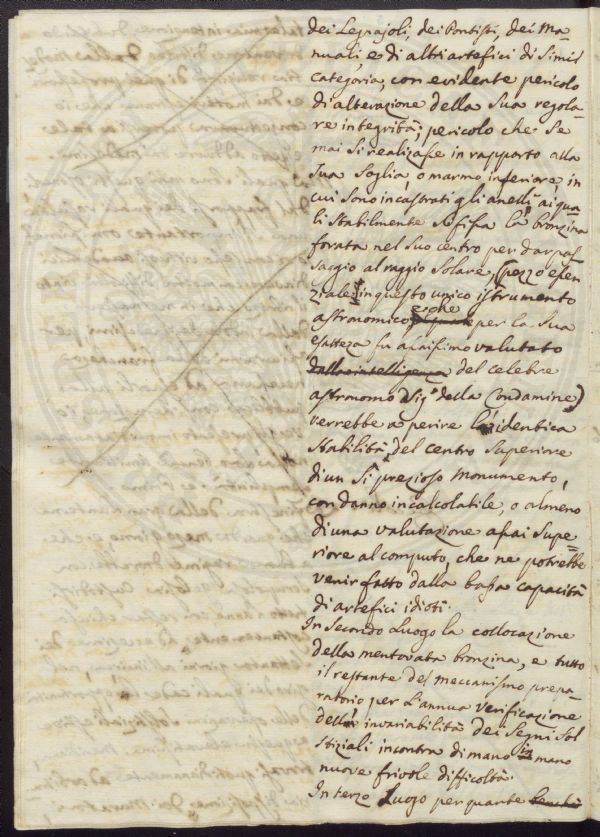 dei Legnajoli, dei Pontisti, dei Ma=
nuali, e di altri artefici di simil
Categoria, con evidente pericolo
di alterazione della sua regola=
re integrità; pericolo che se
mai si realizasse in rapporto alla
sua soglia, o marmo inferiore, in
cui sono incastrati gli anelli, ai qua=
li stabilmente si fissa la bronzina
forata nel suo centro per dar pas=
saggio al raggio solare, (pezzo essen=
ziale in questo unico istrumento
astronomico, e che per la sua
esattezza fu assaissimo valutato
dalla intelligenza del celebre
astronomo Sig.r della Condamine)
verrebbe a perire l'identica
stabilità del centro superiore
di un sì prezioso monumento,
con danno incalcolabile, o almeno
di una valutazione assai supe=
riore al computo, che ne potrebbe
venir fatto dalla bassa capacità
di artefici idioti.
In secondo Luogo la collocazione
della mentovata bronzina, e tutto
il restante del meccanismo prepa=
ratorio per l'annua verificazione
della invariabilità dei Segni Sol
stiziali incontra di mano in mano
nuove frivole difficoltà.
In terzo Luogo per quante benchè